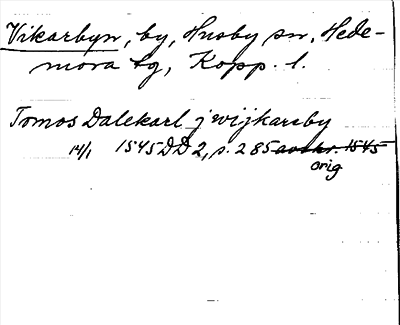 Vikarbyn, by, Husby sn, Hede-
mora tg, Kopp. l.
Tomos Dalekarl j wijkarsby
14/1 1545 DD 2, s. 285 avskr. 1545
orig